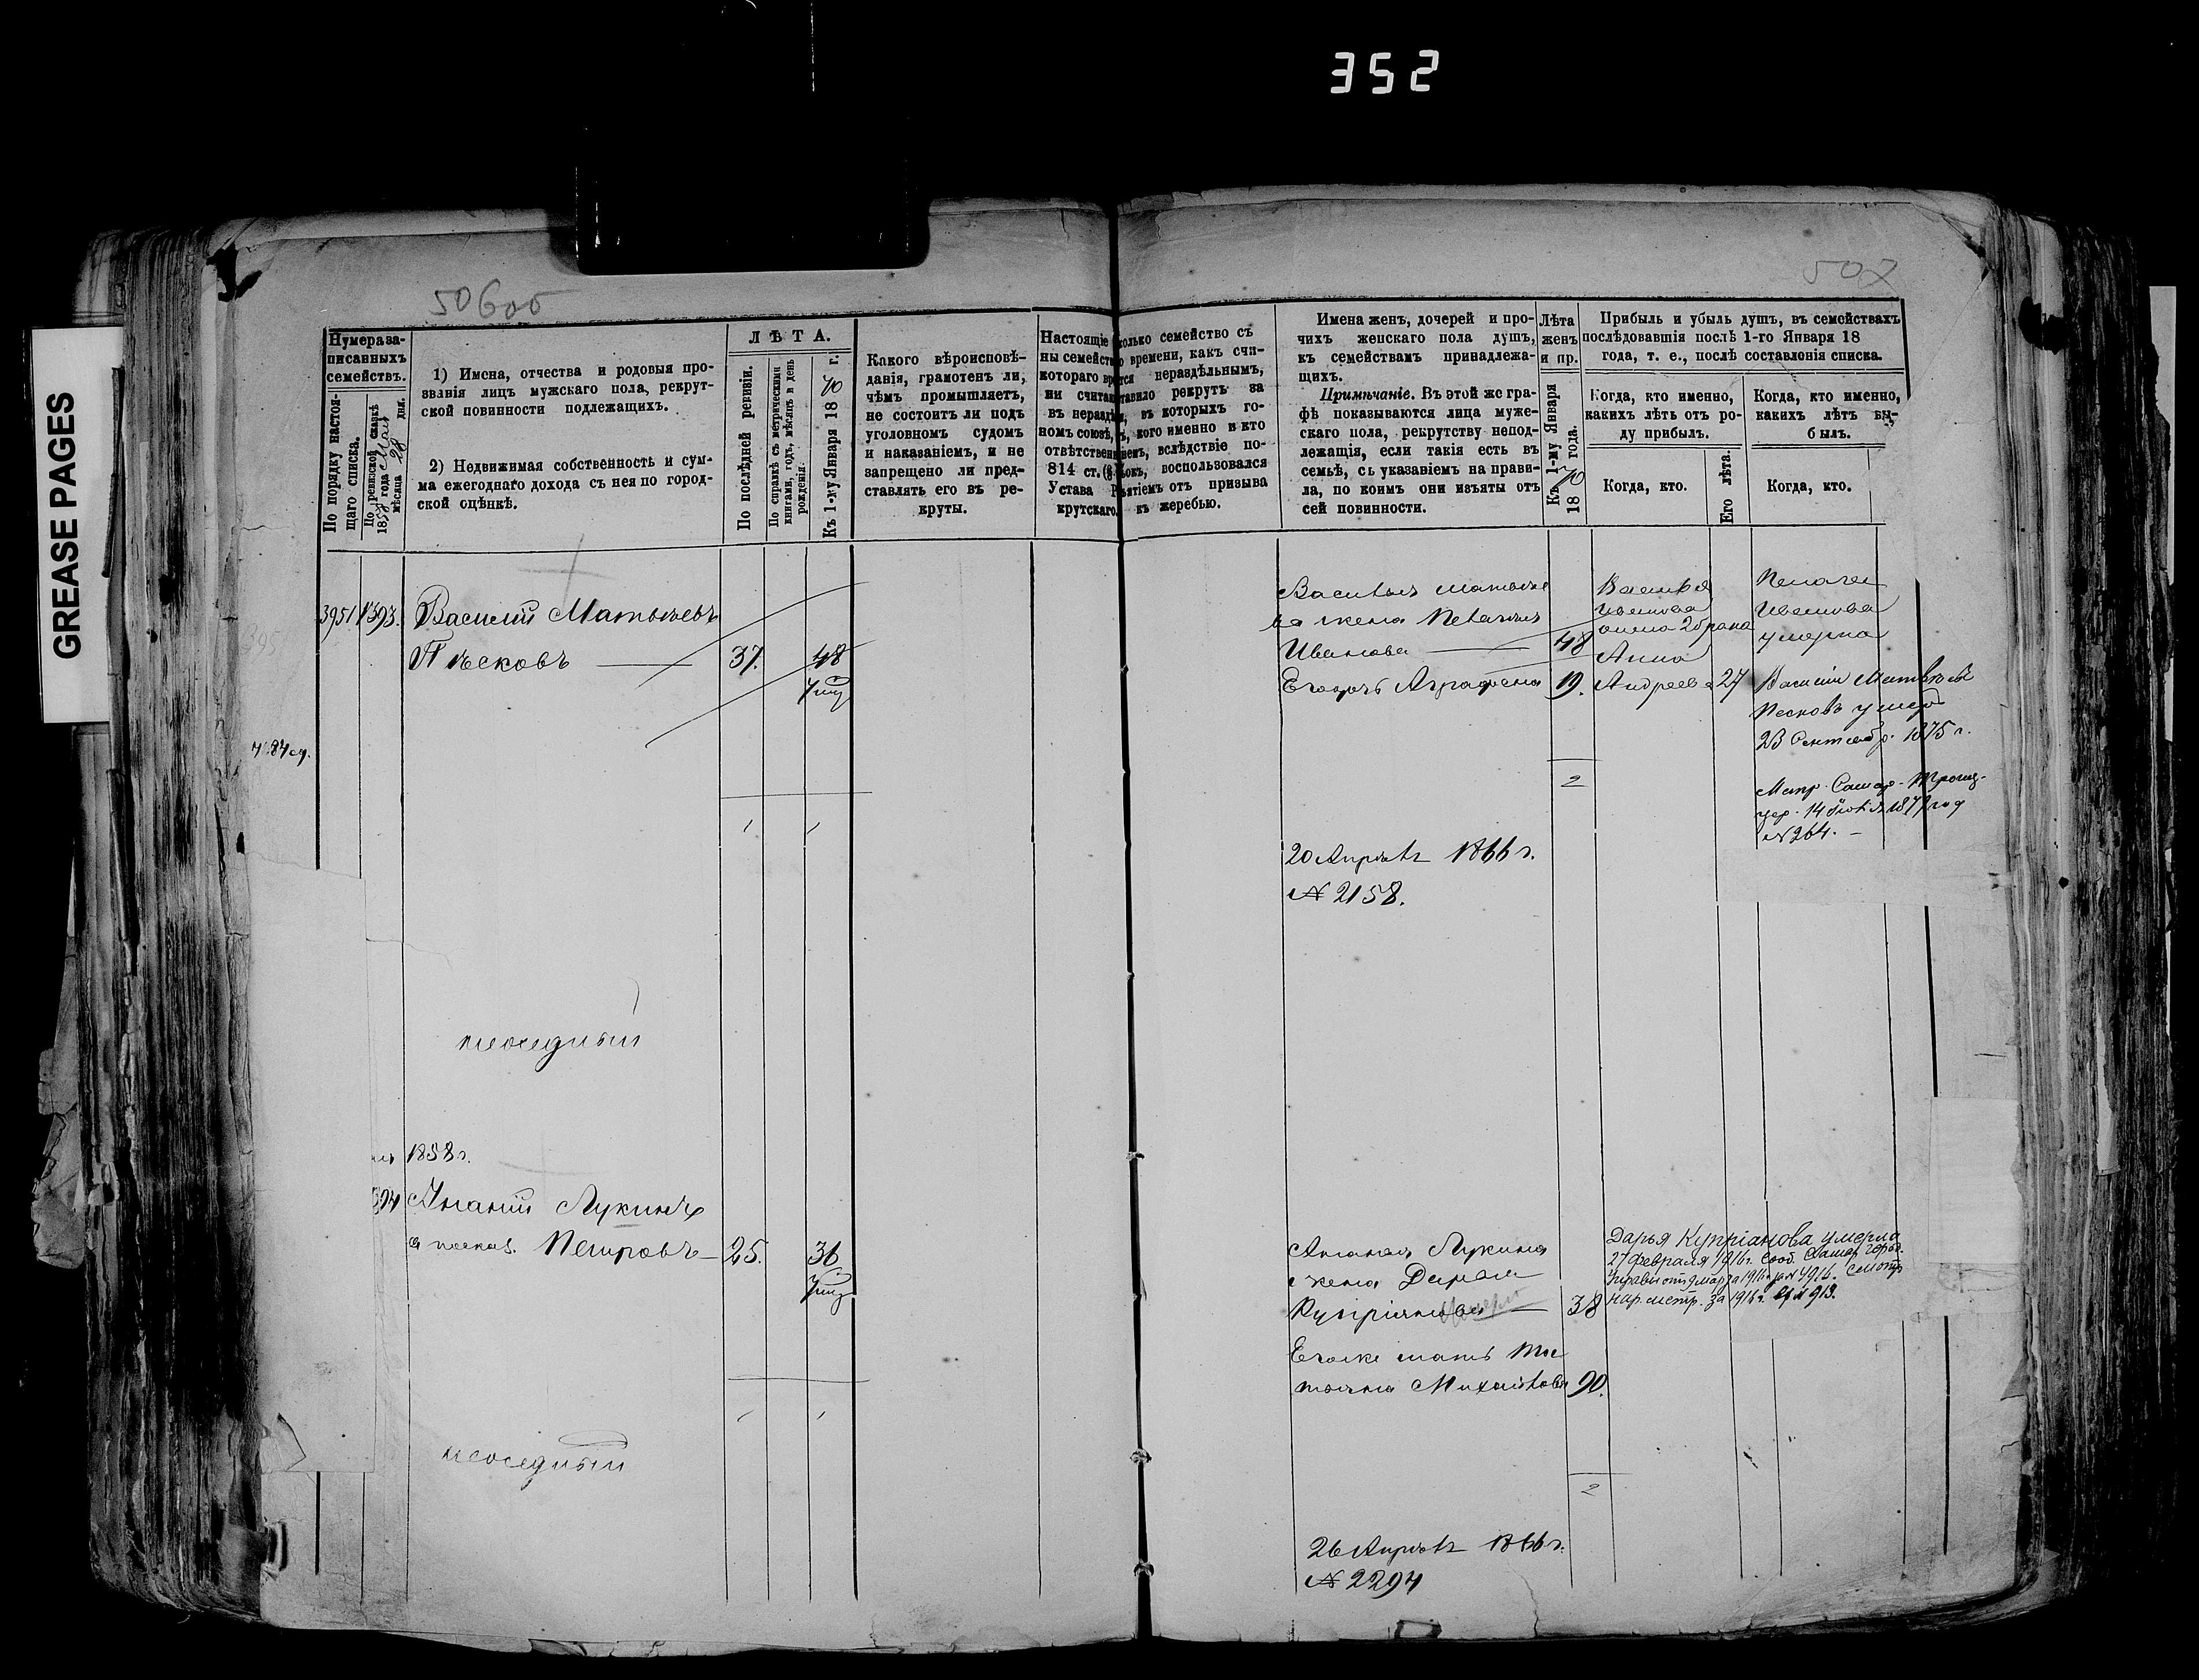 352
GREASE PAGES
506об
507
Нумера за-
писанныхъ
семействъ.
По порядку настоя-
щаго списка.
По ревизской сказкѣ
1858 года Мая
мѣсяца 28 дня.
1) Имена, отчества и родовыя про-
званія лицъ мужскаго пола, рекрут-
ской повинности подлежащихъ.
2) Недвижимая собственность и сум-
ма ежегоднаго дохода съ нея по город-
ской оцѣнкѣ.
ЛѢТА.
По послѣдней ревизіи.
По справкѣ съ метрическими
книгами, годъ, мѣсяцъ и день
рожденія.
Къ 1-му Января 1870 г.
Какого вѣроисповѣ-
данія, грамотенъ ли,
чѣмъ промышляетъ,
не состоитъ ли подъ
уголовномъ судомъ
и наказаніемъ, и не
запрещено ли пред-
ставлять его въ ре-
круты.
Настоящіе
ны семейств
котораго вр
ни считае
въ неразд
номъ союзѣ,
отвѣтственн
814 ст. (§.
Устава Р
крутскаго.
колько семейство съ
о времени, какъ счи-
тся нераздѣльнымъ,
ставило рекрутъ за
въ которыхъ го-
кого именно и кто
вслѣдствіе по-
воспользовался
ъятіемъ отъ призыва
къ жеребью.
Имена женъ, дочерей и про-
чихъ женскаго пола душъ,
къ семействамъ принадлежа-
щихъ.
Примѣчаніе. Въ этой же гра-
фѣ показываются лица муже-
скаго пола, рекрутству непод-
лежащія, если такія есть въ
семьѣ, съ указаніемъ на прави-
ла, по коимъ они изъяты отъ
сей повинности.
Лѣта
женъ
и пр.
Къ 1-му Января
1870 года.
Прибыль и убыль душъ, въ семействахъ
послѣдовавшія послѣ 1-го Января 18
года, т. е., послѣ составлонія списка.
Когда, кто именно,
какихъ лѣтъ отъ ро-
ду прибылъ.
Когда, кто.
Его лѣта.
Когда, кто именно,
какихъ лѣтъ вы-
былъ.
Когда, кто.
3951 1393. Василій Матвѣевъ
Пѣсковъ — 37. 48
Василья Матвѣе
ва жена Пелагея
Иванова — 48
Егожъ Аграфена 19.
Василья
Иванова
жена 2 брака
Анна
Андреева 27
Пелагея
Иванова
умерла
Василій Матвѣевъ
Песковъ умеръ
23 Сентябр. 1875 г.
Метр. Самар. Троиц.
цер. 14 Іюля 1877 год
№ 264. —
2
20 Апрѣля 1866 г.
№ 2158.
неоседлый
1858 г.
394 Ананій Лукинъ
Петровъ — 25. 36
Ананья Лукина
жена Дарья
Купріянова — 38
Егоже мать Та
тьяна Михайлова 90.
Дарья Купріанова умерла
27 февраля 1916 г. Сооб. Самар. Город.
Управы отъ 9 марта 1916 г. за № 4916. Смотр.
нар. метр. за 1916 г. № 913.
2
неоседлый
26 Апрѣля 1866 г.
№ 2294